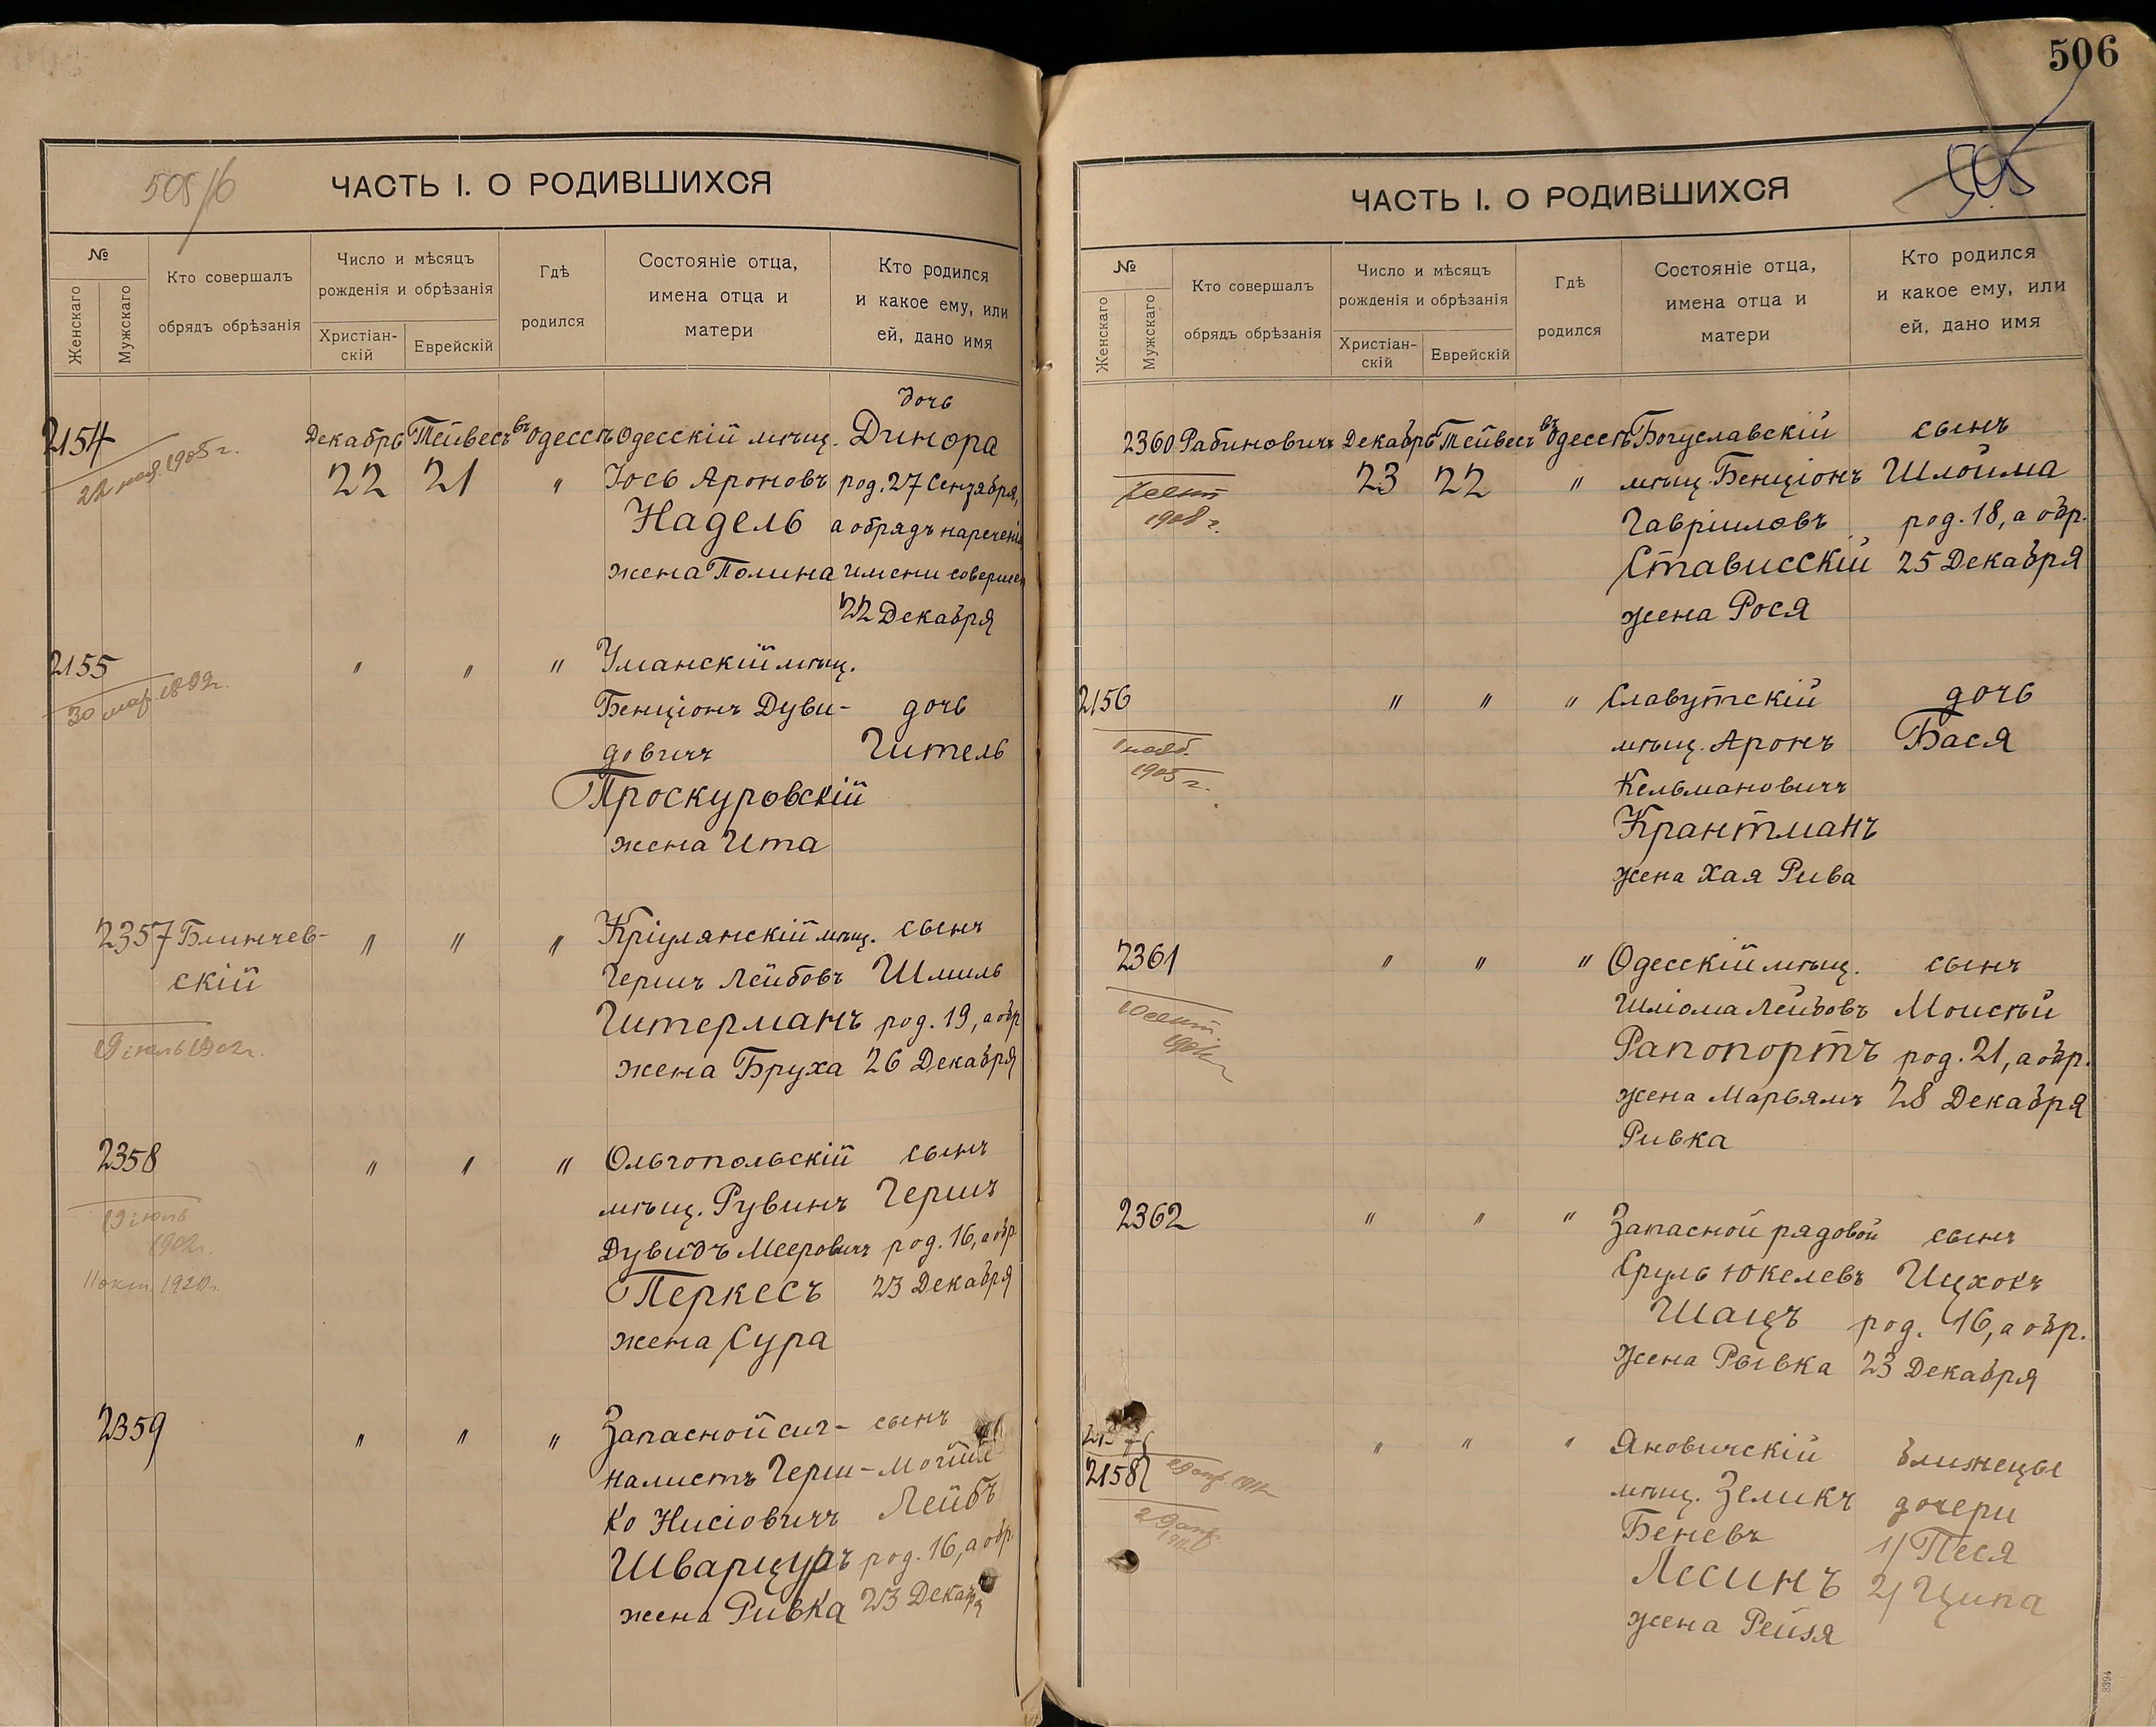 505/6
ЧАСТЬ I. О РОДИВШИХСЯ
№
Женскаго
Мужскаго
Кто совершалъ
обрядъ обрѣзанія
Число и мѣсяцъ
рожденія и обрѣзанія
Христіан-
скій
Еврейскій
Гдѣ
родился
Состояніе отца,
имена отца и
матери
Кто родился
и какое ему, или
ей, дано имя
дочь
2154 Декабрь Тейвесъ въ Одессѣ Одесскій мѣщ. Динора
22 21 " Іось Ароновъ род. 27 Сентября,
Надель а обрядъ наречені
жена Полина имени соверше
22 Декабря
2155 " " " Уманскій мѣщ.
30 мар. 1892г.
Бенціонъ Дуви- дочь
довичъ Гитель
Проскуровскій
жена Ита
2357 Блинчев- " " " Кріулянскій мѣщ. сынъ
скій Гершъ Лейбовъ Шмиль
Гитерманъ род. 19, а обр
19 іюль 1902г.
жена Бруха 26 Декабря
2358 " " " Ольгопольскій сынъ
19 іюль
мѣщ. Рувинъ Гершъ
1902г.
Дувидъ Мееровичъ род. 16, а обр
11 окт. 1920г.
Перкесъ 23 Декабря
жена Сура
2359 " " " Запасной сиг- сынъ
налистъ Герш-
ко Нисіовичъ Лейбъ
Шварцуръ род. 16, а обр
жена Ривка 23 Декабря
506
505
ЧАСТЬ I. О РОДИВШИХСЯ
№
Женскаго
Мужскаго
Кто совершалъ
обрядъ обрѣзанія
Число и мѣсяцъ
рожденія и обрѣзанія
Христіан-
скій
Еврейскій
Гдѣ
родился
Состояніе отца,
имена отца и
матери
Кто родился
и какое ему, или
ей, дано имя
2360 Рабиновичъ Декабрь Тейвесъ въ Одессѣ Богуславскій сынъ
23 22 " мѣщ. Бенціонъ Шлойма
1908 г.
Гавріиловъ род. 18, а обр.
Стависскій 25 Декабря
жена Рося
2156 " " " Славутскій дочь
мѣщ. Аронъ Бася
1905 г.
Кельмановичъ
Крантманъ
жена Хая Рива
2361 " " " Одесскій мѣщ. сынъ
Шліома Лейбовъ Моисей
Рапопортъ род. 21, а обр.
жена Марьямъ 28 Декабря
Ривка
2362 " " " Запасной рядовой сынъ
Сруль Юкелевъ Ицхокъ
Шацъ род. 16, а обр.
жена Рывка 23 Декабря
" " " Яновичскій близнецы
2158
мѣщ. Зеликъ дочери
Беневъ 1/ Песя
Лесинъ 2/ Ципа
жена Рейзя
8394